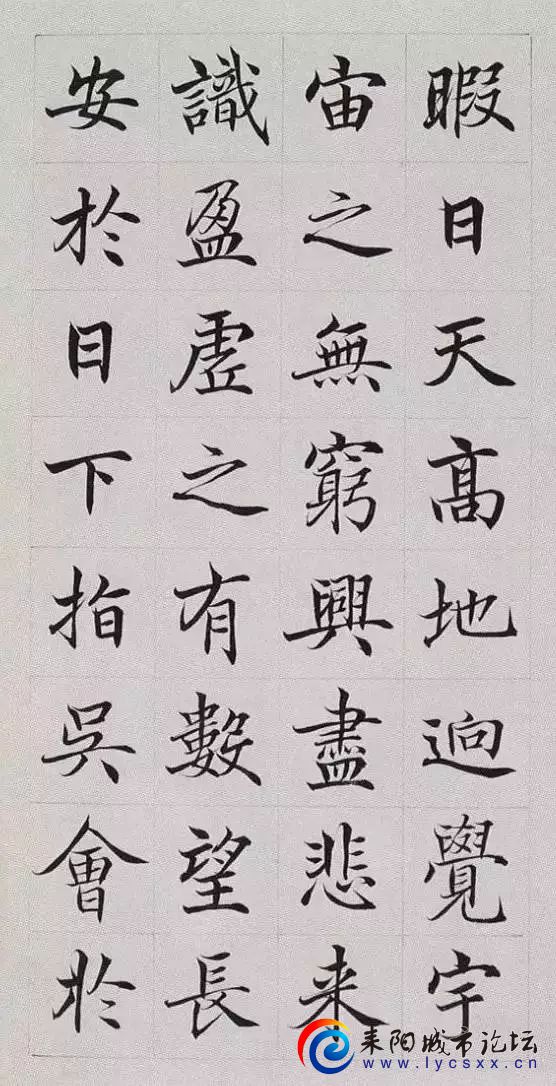 暇日天高地逈覺宇
宙之無窮興盡悲来
識盈虛之有數望長
安於日下指吳會於
耒阳城市论坛
www.lycsxx.cn